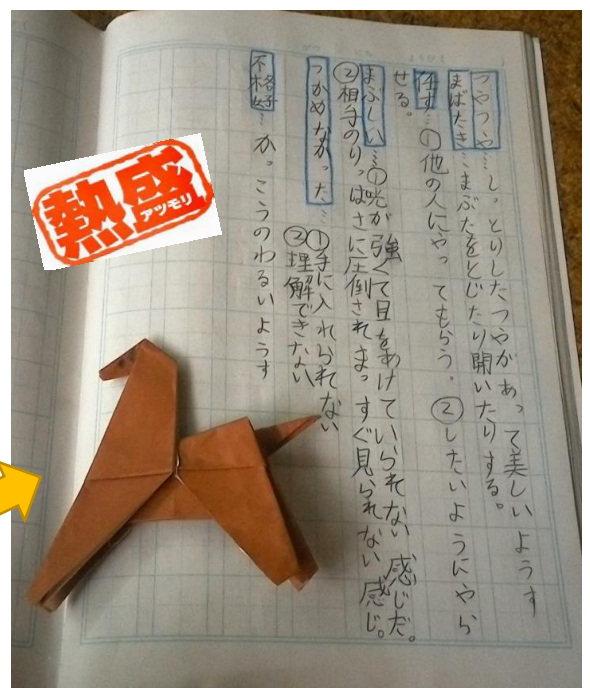 つやつや…しっとりしたつやがあって美しいようす
まばたき…まぶたをとじたり開いたりする。
任す…①他の人にやってもらう。②したいようにやら
せる。
まぶしい…①光が強くて目をあけていられない感じだ。
②相手のりっぱさに圧倒されまっすぐ見られない感じ。
つかめなかった…①手に入れられない
②理解できない
不格好…かっこうのわるいようす
熱盛
アツモリ